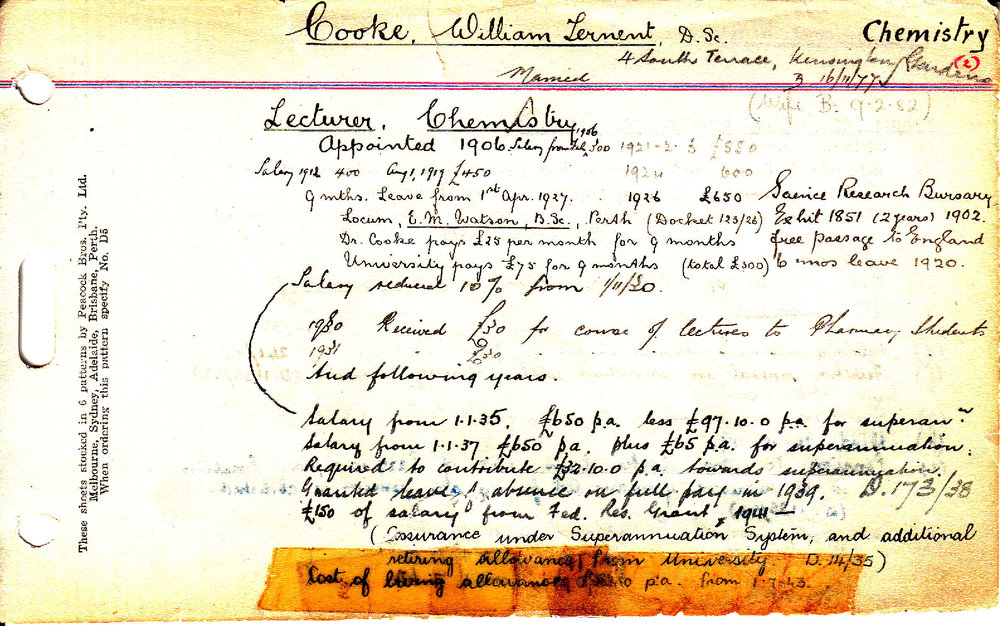 Cooke, William Ternent, D.Sc.
Chemistry
(2)
4 South Terrace, Kensington Gardens
Married
B 16/11/77
(Wife B. 9-2-82)
Lecturer, Chemistry
Appointed 1906. Salary from Feb 1906 300 1921-2-3 £550
Salary 1912 400 Aug 1, 1919 £450 1924 600
9 mths. Leave from 1st Apr. 1927. 1926 £650 Science Research Bursary
Locum, E.M. Watson, B.Sc., Perth (Docket 123/26) Exhibit 1851 (2 years) 1902.
Dr. Cooke pays £25 per month for 9 months free passage to England
University pays £75 for 9 months (total £300) 6 mos leave 1920.
Salary reduced 10% from 1/11/30.
1930 Received £30 for course of lectures to Pharmacy Students
1931 £30
And following years.
Salary from 1.1.35. £650 p.a. less £97.10.0 p.a. for superan.n
Salary from 1.1.37 £650 p.a. plus £65 p.a. for superannuation.
Required to contribute £32.10.0 p.a. towards superannuation.
Granted leave of absence on full pay in 1939. D.173/38
£150 of salary from Fed. Res. Grant, 1941 —
(Assurance under Superannuation System, and additional
retiring allowance from University D.14/35)
Cost of living allowance p.a. from 1-7-43.
These sheets stocked in 6 patterns by Peacock Bros. Pty. Ltd.
Melbourne, Sydney, Adelaide, Brisbane, Perth.
When ordering this pattern specify No. D5